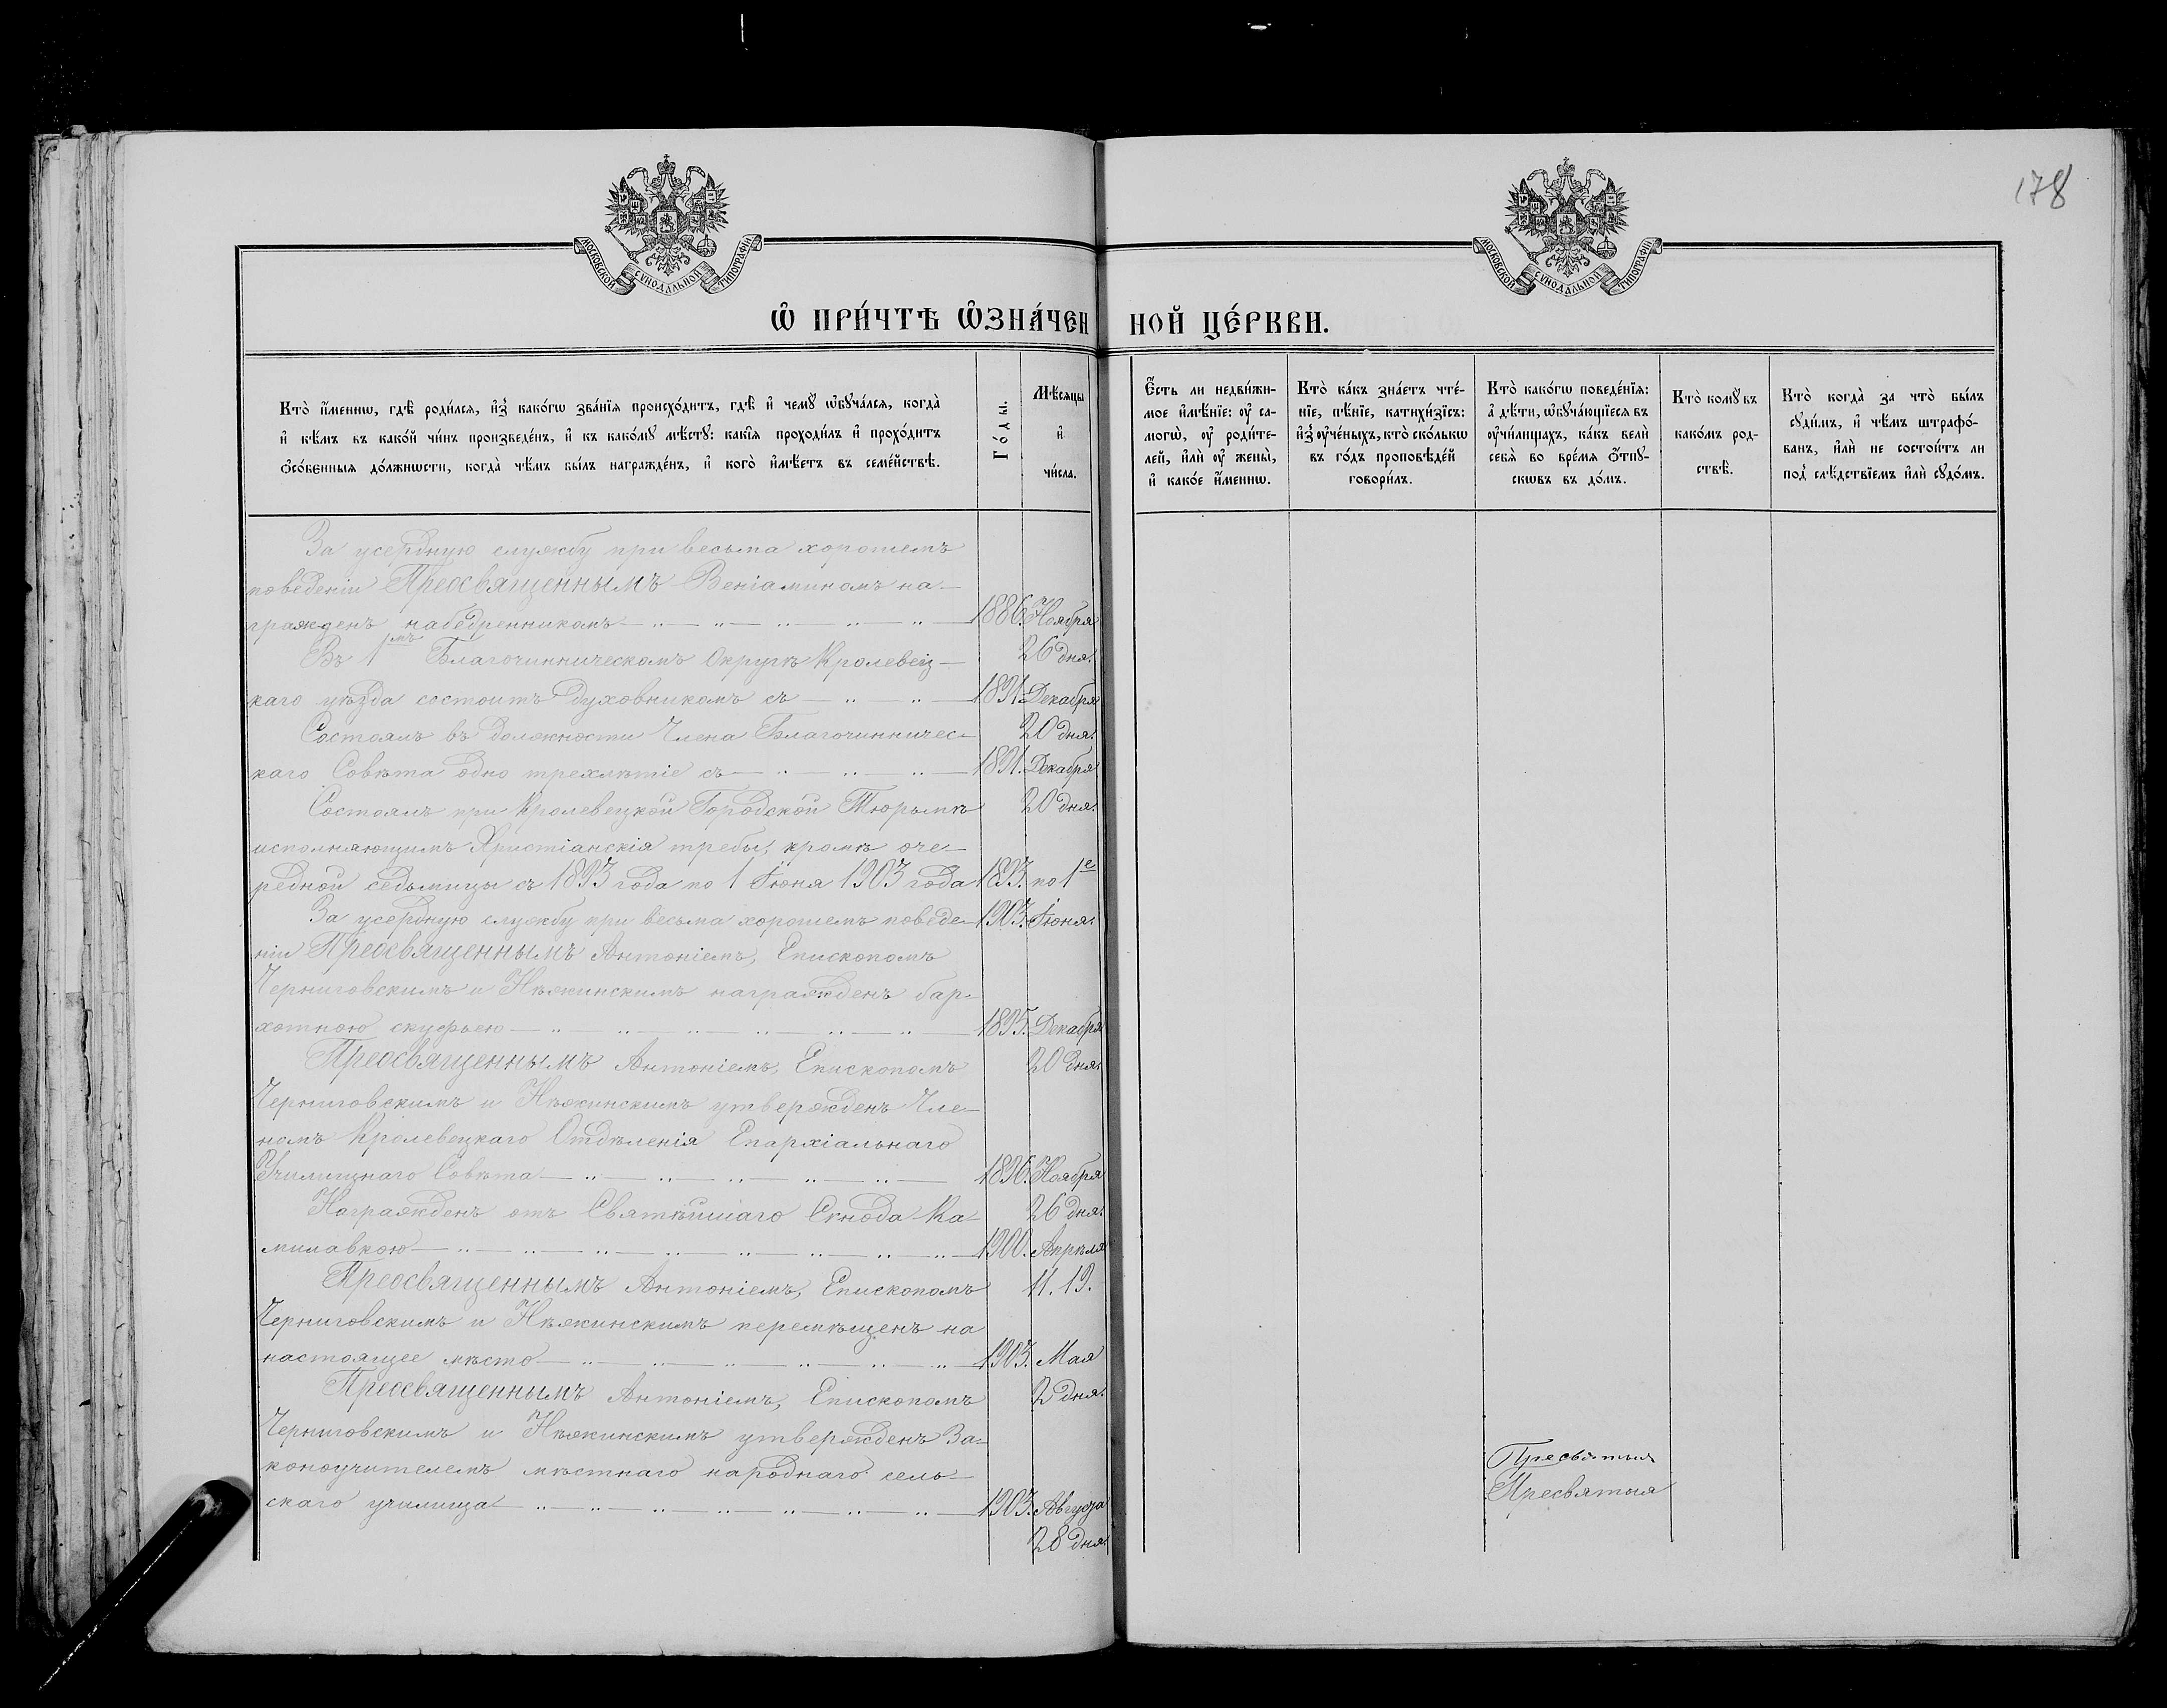 178
МОСКОВСКОЙ СѴНОДАЛЬНОЙ ТИПОГРАФІИ
МОСКОВСКОЙ СѴНОДАЛЬНОЙ ТИПОГРАФІИ
Ѡ ПРИ́ЧТѢ ѠЗНА́ЧЕН НОЙ ЦЕ́РКВИ.
Кто̀ и҆́менно, гдѣ̀ роди́лся, и҆з̾ како́гѡ зва́нїѧ происхо́дитъ, гдѣ̀ и҆ чемꙋ̀ ѡ҆бꙋча́лся, когда̀
и҆ кѣ́мъ въ како́й чи́нъ произведе́нъ, и҆ къ како́мꙋ мѣ́стꙋ: какі̑ѧ проходи́лъ и҆ прохо́дитъ
ѻ҆со́бенныѧ до́лжнѡсти, когда̀ чѣ́мъ бы́лъ награжде́нъ, и҆ кого̀ и҆мѣ́етъ въ семе́йствѣ.
Го́ды.
Мѣ́сяцы
и҆
чи́сла.
Є҆́сть ли недви́жи-
мое и҆мѣ́нїе: ᲂу҆ са-
могѡ̀, ᲂу҆ роди́те-
лей, и҆лѝ ᲂу҆ жены̀,
и҆ како́е и҆́менно.
Кто̀ ка́къ зна́етъ чте́-
нїе, пѣ́нїе, катихи́зїсъ:
и҆з̾ ᲂу҆че́ныхъ, кто̀ ско́лькѡ
въ го́дъ проповѣ́дей
говори́лъ.
Кто̀ како́гѡ поведе́нїѧ:
а҆ дѣ́ти, ѡ҆бꙋча́ющїеся въ
ᲂу҆чи́лищахъ, ка́къ велѝ
себѧ̀ во вре́мѧ ѻ҆́тпꙋ-
скѡвъ въ до́мъ.
Кто̀ комꙋ̀ въ
како́мъ род-
ствѣ̀.
Кто̀ когда̀ за что̀ бы́лъ
сꙋди́мъ, и҆ чѣ́мъ штрафо́-
ванъ, и҆лѝ не состои́тъ ли
под̾ слѣ́дствїемъ и҆лѝ сꙋдо́мъ.
За усердную службу при весьма хорошемъ
поведеніи Преосвященнымъ Веніаминомъ на-
гражденъ набедренникомъ 1886. Ноября
26 дня.
Въ 1мъ Благочинническомъ Округѣ Кролевец-
каго уѣзда состоитъ духовникомъ съ 1891. Декабря
20 дня.
Состоялъ въ должности Члена Благочинничес-
каго Совѣта одно трехлѣтіе съ 1891. Декабря
20 дня.
Состоялъ при Кролевецкой Городской Тюрьмѣ
исполняющимъ Христіанскія требы, кромѣ оче-
редной седьмицы съ 1893 года по 1 Іюня 1903 года 1893. по 1е
1903. Іюня.
За усердную службу при весьма хорошемъ поведе-
ніи Преосвященнымъ Антоніемъ, Епископомъ
Черниговскимъ и Нѣжинскимъ награжденъ бар-
хотною скуфьею 1895. Декабря
20 дня.
Преосвященнымъ Антоніемъ, Епископомъ
Черниговскимъ и Нѣжинскимъ утвержденъ Чле-
номъ Кролевецкаго Отдѣленія Епархіальнаго
Училищнаго Совѣта 1896. Ноября
26 дня.
Награжденъ отъ Святѣйшаго Сѵнода Ка-
милавкою 1900. Апрѣля
11.19.
Преосвященнымъ Антоніемъ, Епископомъ
Черниговскимъ и Нѣжинскимъ перемѣщенъ на
настоящее мѣсто 1903. Мая
2 дня.
Преосвященнымъ Антоніемъ, Епископомъ
Черниговскимъ и Нѣжинскимъ утвержденъ За-
коноучителемъ мѣстнаго народнаго сель-
скаго училища 1903. Августа
28 дня.
Пресвятыя
Пресвятыя